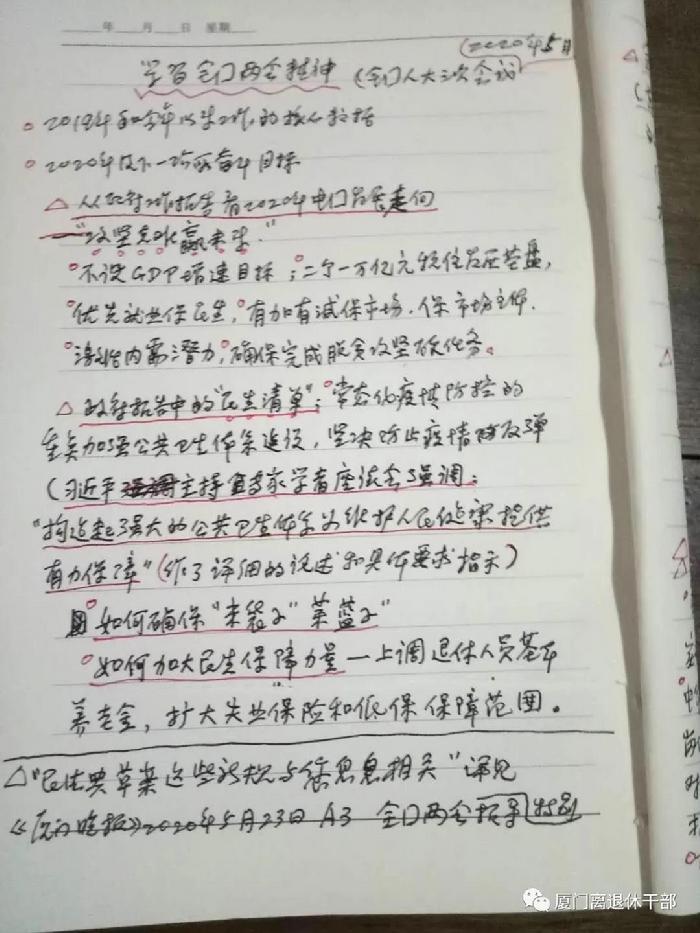 年 月 日 星期
(2020年5月
学习全国两会精神 (全国人大三次会议
2019年和今年以来工作的核心数据
2020年及下一阶段奋斗目标
△ 从政府工作报告看2020年中国发展走向
"攻坚克难赢未来."
不设GDP增速目标;二个一万亿元稳住发展基盘,
优先就业保民生,有加有减保市场.保市场主体.
激活内需潜力,确保完成脱贫攻坚硬任务。
△ 政府报告中的"民生清单":常态化疫情防控的
重点加强公共卫生体系建设,坚决防止疫情反弹
(习近平主持专家学者座谈会强调:
"构造起强大的公共卫生体系为维护人民健康提供
有力保障"(作了详细的论述和具体要求指示)
如何确保"米袋子""菜篮子"
如何加大民生保障力量一上调退休人员基本
养老金,扩大失业保险和低保保障范围。
△"民法典草案这些新规与你息息相关"详见
《厦门晚报》2020年5月23日 A3 全国两会报导特别
厦门离退休干部